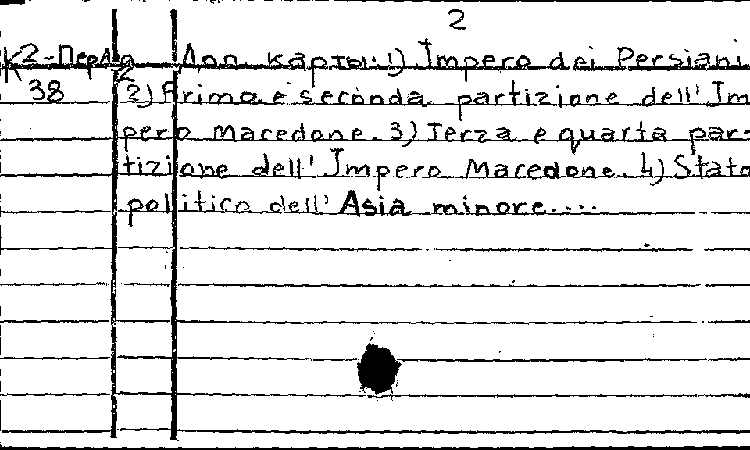 2
К2-Пер Доп. карты: 1) Impero dei Persiani.
38 2) Prima e seconda partizione dell' Im-
pero Macedone. 3) Terza e quarta par-
tizione dell' Impero Macedone. 4) Stato
politico dell' Asia minore....